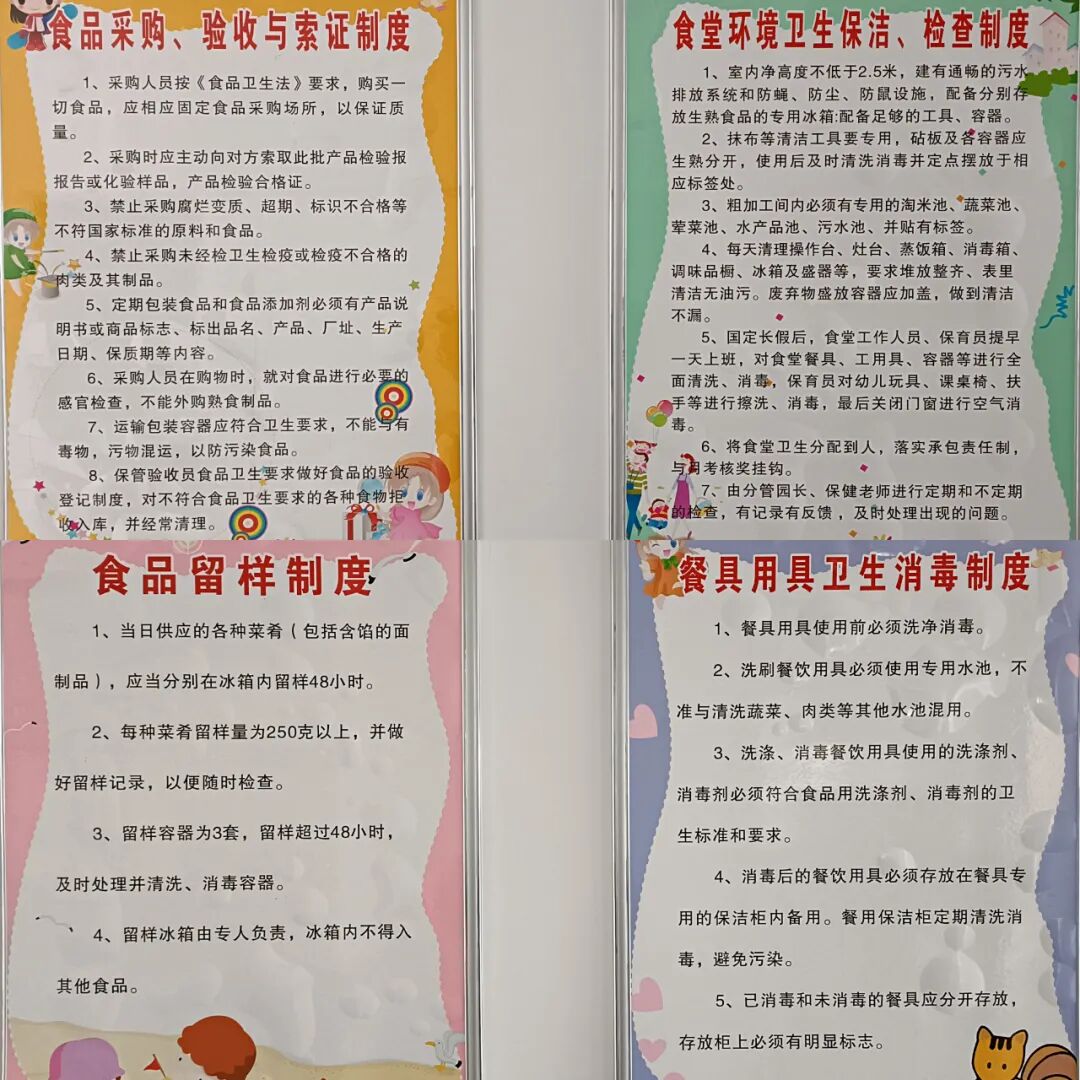 食品采购、验收与索证制度
1、采购人员按《食品卫生法》要求，购买一
切食品，应相应固定食品采购场所，以保证质
量。
2、采购时应主动向对方索取此批产品检验报
报告或化验样品，产品检验合格证。
3、禁止采购腐烂变质、超期、标识不合格等
不符国家标准的原料和食品。
4、禁止采购未经检卫生检疫或检疫不合格的
肉类及其制品。
5、定期包装食品和食品添加剂必须有产品说
明书或商品标志、标出品名、产品、厂址、生产
日期、保质期等内容。
6、采购人员在购物时，就对食品进行必要的
感官检查，不能外购熟食制品。
7、运输包装容器应符合卫生要求，不能与有
毒物，污物混运，以防污染食品。
8、保管验收员食品卫生要求做好食品的验收
登记制度，对不符合食品卫生要求的各种食物拒
收入库，并经常清理。
食堂环境卫生保洁、检查制度
1、室内净高度不低于2.5米，建有通畅的污水
排放系统和防蝇、防尘、防鼠设施，配备分别存
放生熟食品的专用冰箱:配备足够的工具、容器。
2、抹布等清洁工具要专用，砧板及各容器应
生熟分开，使用后及时清洗消毒并定点摆放于相
应标签处。
3、粗加工间内必须有专用的淘米池、蔬菜池、
荤菜池、水产品池、污水池、并贴有标签。
4、每天清理操作台、灶台、蒸饭箱、消毒箱、
调味品橱、冰箱及盛器等，要求堆放整齐、表里
清洁无油污。废弃物盛放容器应加盖，做到清洁
不漏。
5、国定长假后，食堂工作人员、保育员提早
一天上班，对食堂餐具、工用具、容器等进行全
面清洗、消毒，保育员对幼儿玩具、课桌椅、扶
手等进行擦洗、消毒，最后关闭门窗进行空气消
毒。
6、将食堂卫生分配到人，落实承包责任制，
与月考核奖挂钩。
7、由分管园长、保健老师进行定期和不定期
的检查，有记录有反馈，及时处理出现的问题。
食品留样制度
1、当日供应的各种菜肴（包括含馅的面
制品），应当分别在冰箱内留样48小时。
2、每种菜肴留样量为250克以上，并做
好留样记录，以便随时检查。
3、留样容器为3套，留样超过48小时，
及时处理并清洗、消毒容器。
4、留样冰箱由专人负责，冰箱内不得入
其他食品。
餐具用具卫生消毒制度
1、餐具用具使用前必须洗净消毒。
2、洗刷餐饮用具必须使用专用水池，不
准与清洗蔬菜、肉类等其他水池混用。
3、洗涤、消毒餐饮用具使用的洗涤剂、
消毒剂必须符合食品用洗涤剂、消毒剂的卫
生标准和要求。
4、消毒后的餐饮用具必须存放在餐具专
用的保洁柜内备用。餐用保洁柜定期清洗消
毒，避免污染。
5、已消毒和未消毒的餐具应分开存放，
存放柜上必须有明显标志。